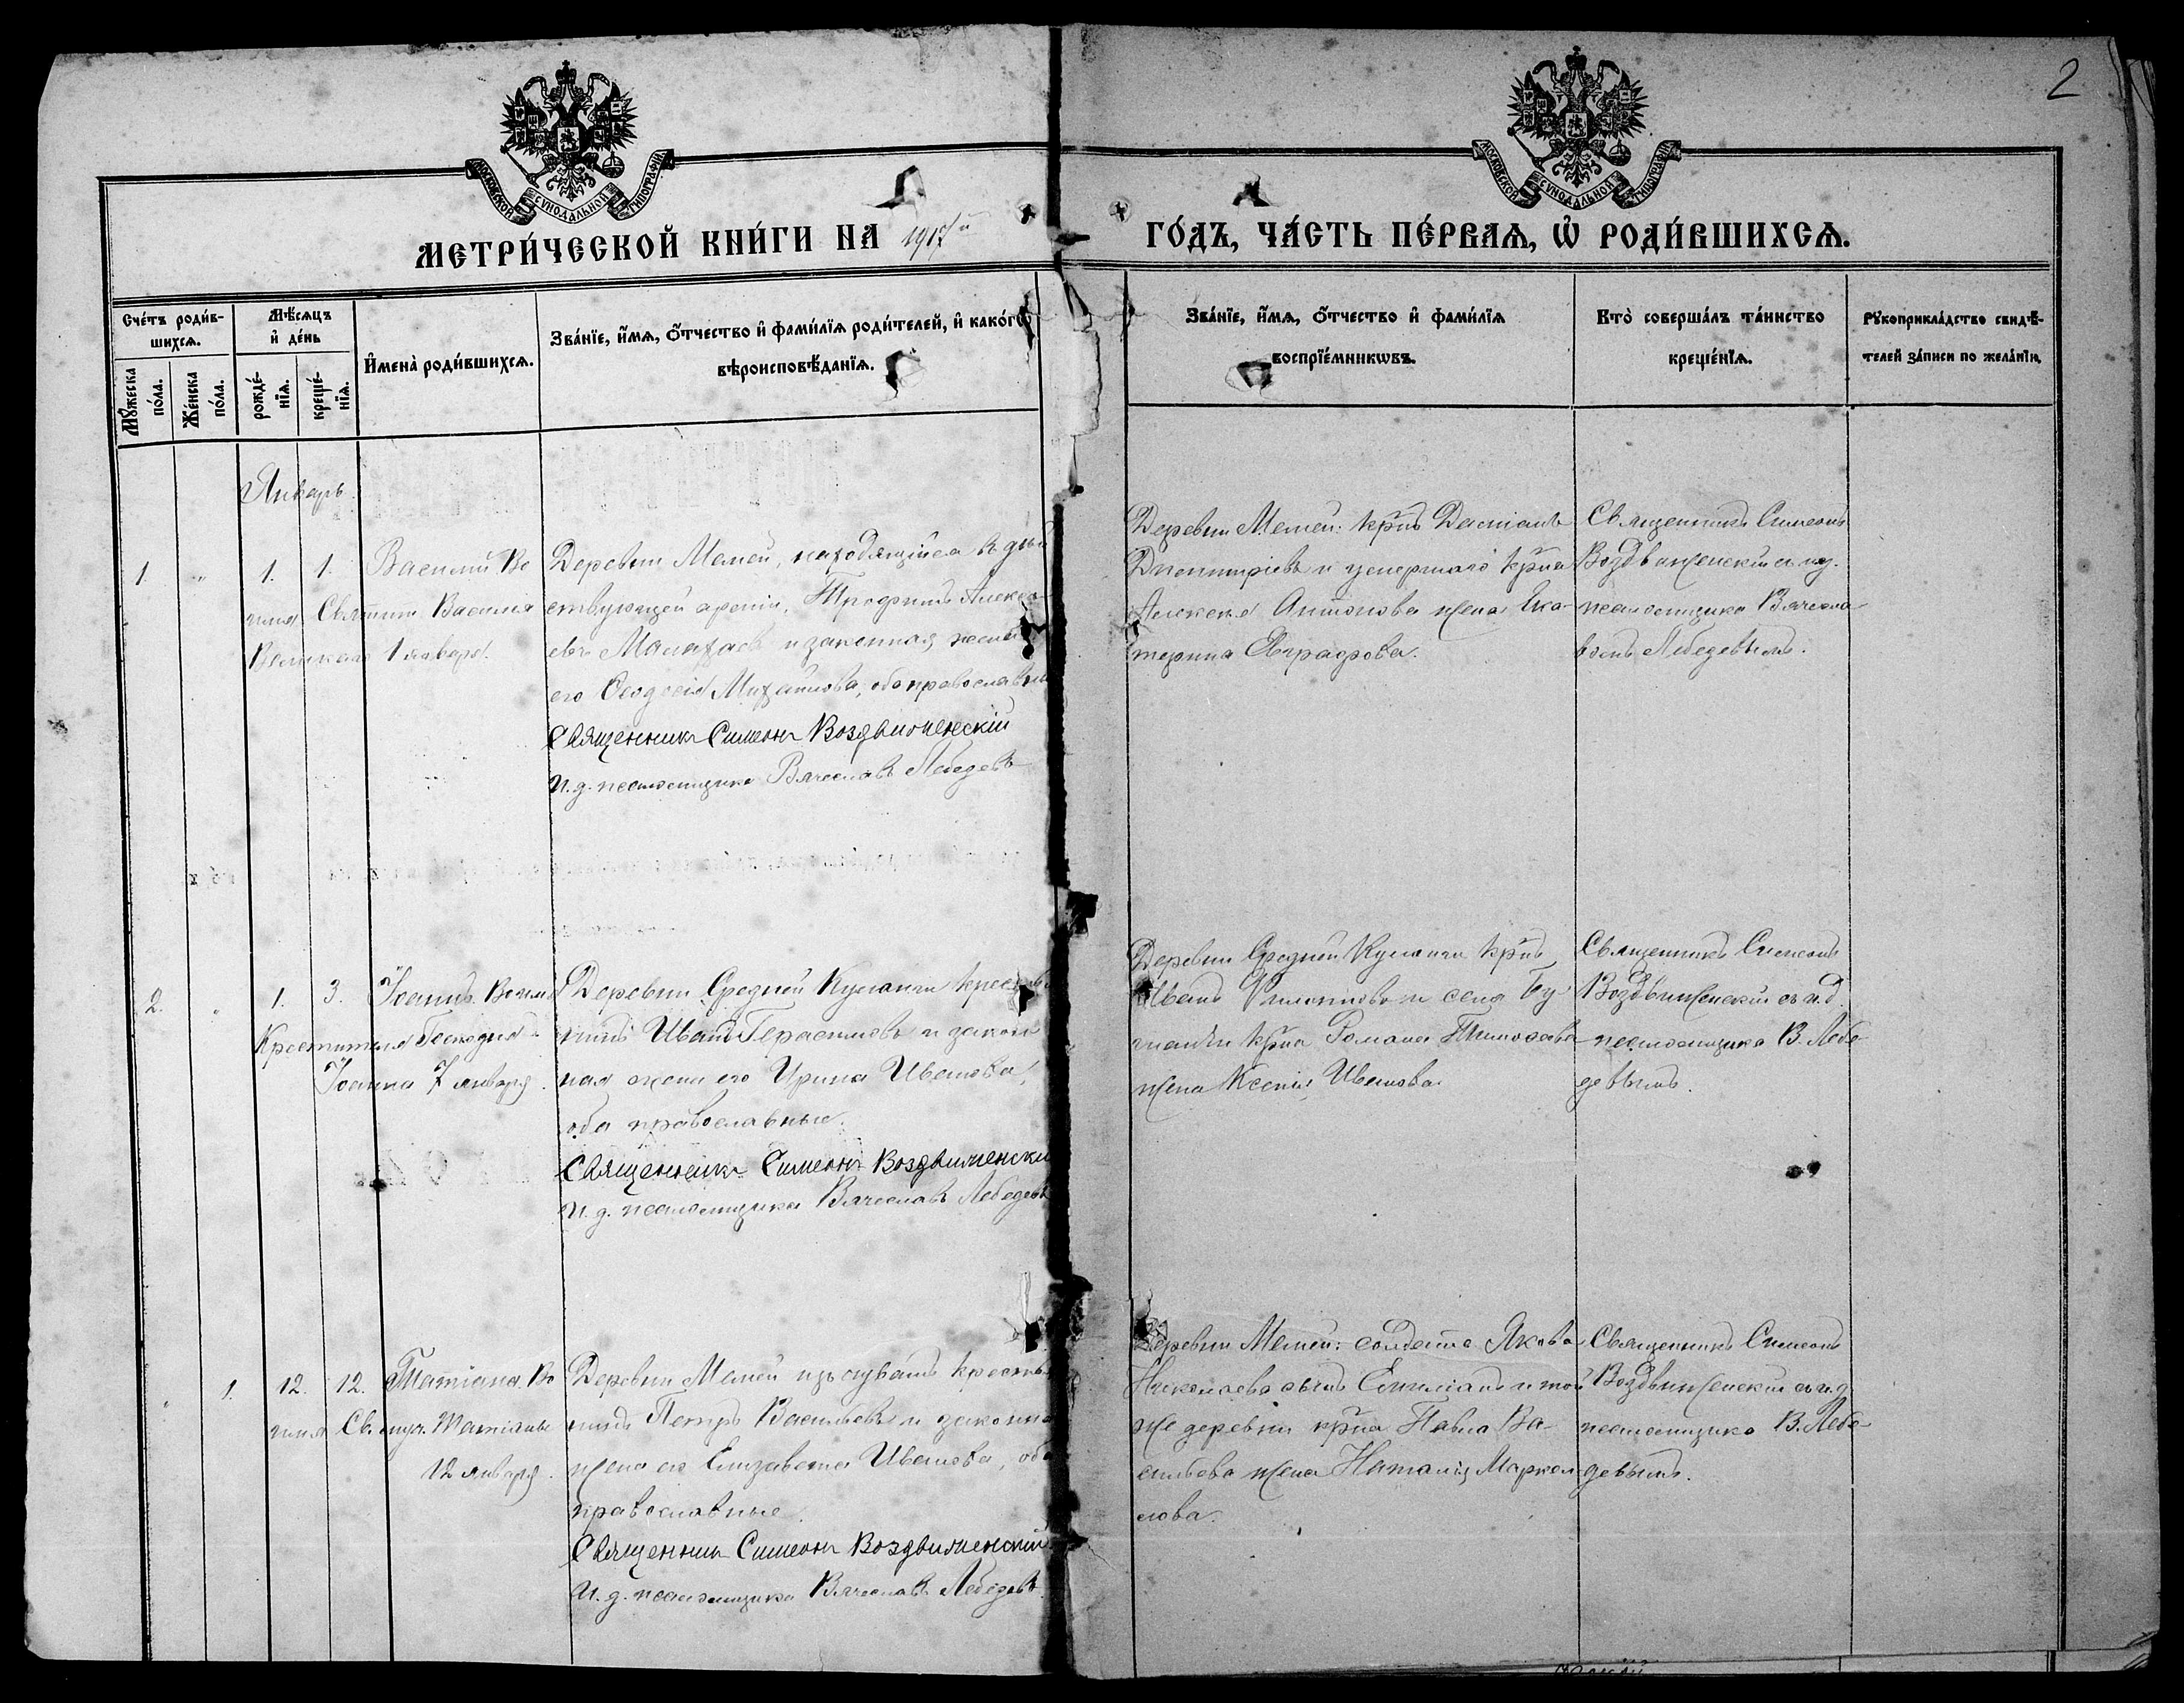 2
МОСКОВСКОЙ СѴНОДАЛЬНОЙ ТИПОГРАФІИ
МОСКОВСКОЙ СѴНОДАЛЬНОЙ ТИПОГРАФІИ
МЕТРИ́ЧЕСКОЙ КНИ́ГИ НА 1917й
ГО́ДЪ, ЧА́СТЬ ПЕ́РВАѦ, Ѡ РОДИ́ВШИХСѦ.
Сче́тъ роди́в-
шихсѧ.
Мꙋжеска
по́ла.
Же́нска
по́ла.
Мѣ́сѧцъ
и де́нь
рожде́-
нїѧ.
креще́-
нїѧ.
Имена̀ роди́вшихсѧ.
Зва́нїе, и́мѧ, о́тчество и фами́лїѧ роди́телей, и како́гѡ
вѣроисповѣ́данїѧ.
Зва́нїе, и́мѧ, о́тчество и фами́лїѧ
воспрїе́мникѡвъ.
Кто̀ соверша́лъ та́инство
креще́нїѧ.
Рꙋкоприкла́дство свидѣ́-
телей за́писи по жела́нїю.
Январь.
1 " 1. 1. Василій Во
имя Святит Василія
Великаго 1 января.
Деревни Мемей, находящійся въ дѣй
ствующей арміи, Трофимъ Алексѣ-
евъ и законная жена
его Ѳеодосія Михайлова, оба православн
Священникъ Симеонъ Воздвиженскій
И. д. псаломщика Вячеславъ Лебедевъ
Деревни Мемей: кр̃нъ Даміанъ
Димитріевъ и умершаго кр̃на
Алексея Антонова жена Ека-
терина Евграфова.
Священникъ Симеонъ
Воздвиженскій съ и.д.
псаломщика Вячесла
вомъ Лебедевымъ.
2. " 1. 3. Іоаннъ. Во имя
Крестителя Господня
Іоанна 7 января.
Деревни Средней Куланги крестья
нинъ Иванъ Герасимовъ и закон
ная жена его Ирина Иванова,
оба православные.
Священникъ Симеонъ Воздвиженскі
И. д. псаломщика Вячеславъ Лебедевъ
Деревни Средней Куланги кр̃нъ
Иванъ Филиппов и села Бу
кр̃на Романа
жена Ксенія Иванова.
Священникъ Симеонъ
Воздвиженскій съ и.д.
псаломщика В. Лебе
девымъ.
" 1. 12. 12. Татіана. Во
имя Св. муч. Татіаны
12 января.
Деревни Мемей изъ чувашъ крестья
нинъ Петръ Васильевъ и законна
жена его Елизавета Иванова, оба
православные.
Священник Симеонъ Воздвиженскій
И. д. псаломщика Вячеславъ Лебедевъ.
Деревни Мемей: солдата Якова
Николаева сынъ Емиліанъ и той
же деревни кр̃на Павла Ва-
сильева жена Наталія Маркел
лова.
Священникъ Симеонъ
Воздвиженскій съ и.д.
псаломщика В. Лебе
девымъ.